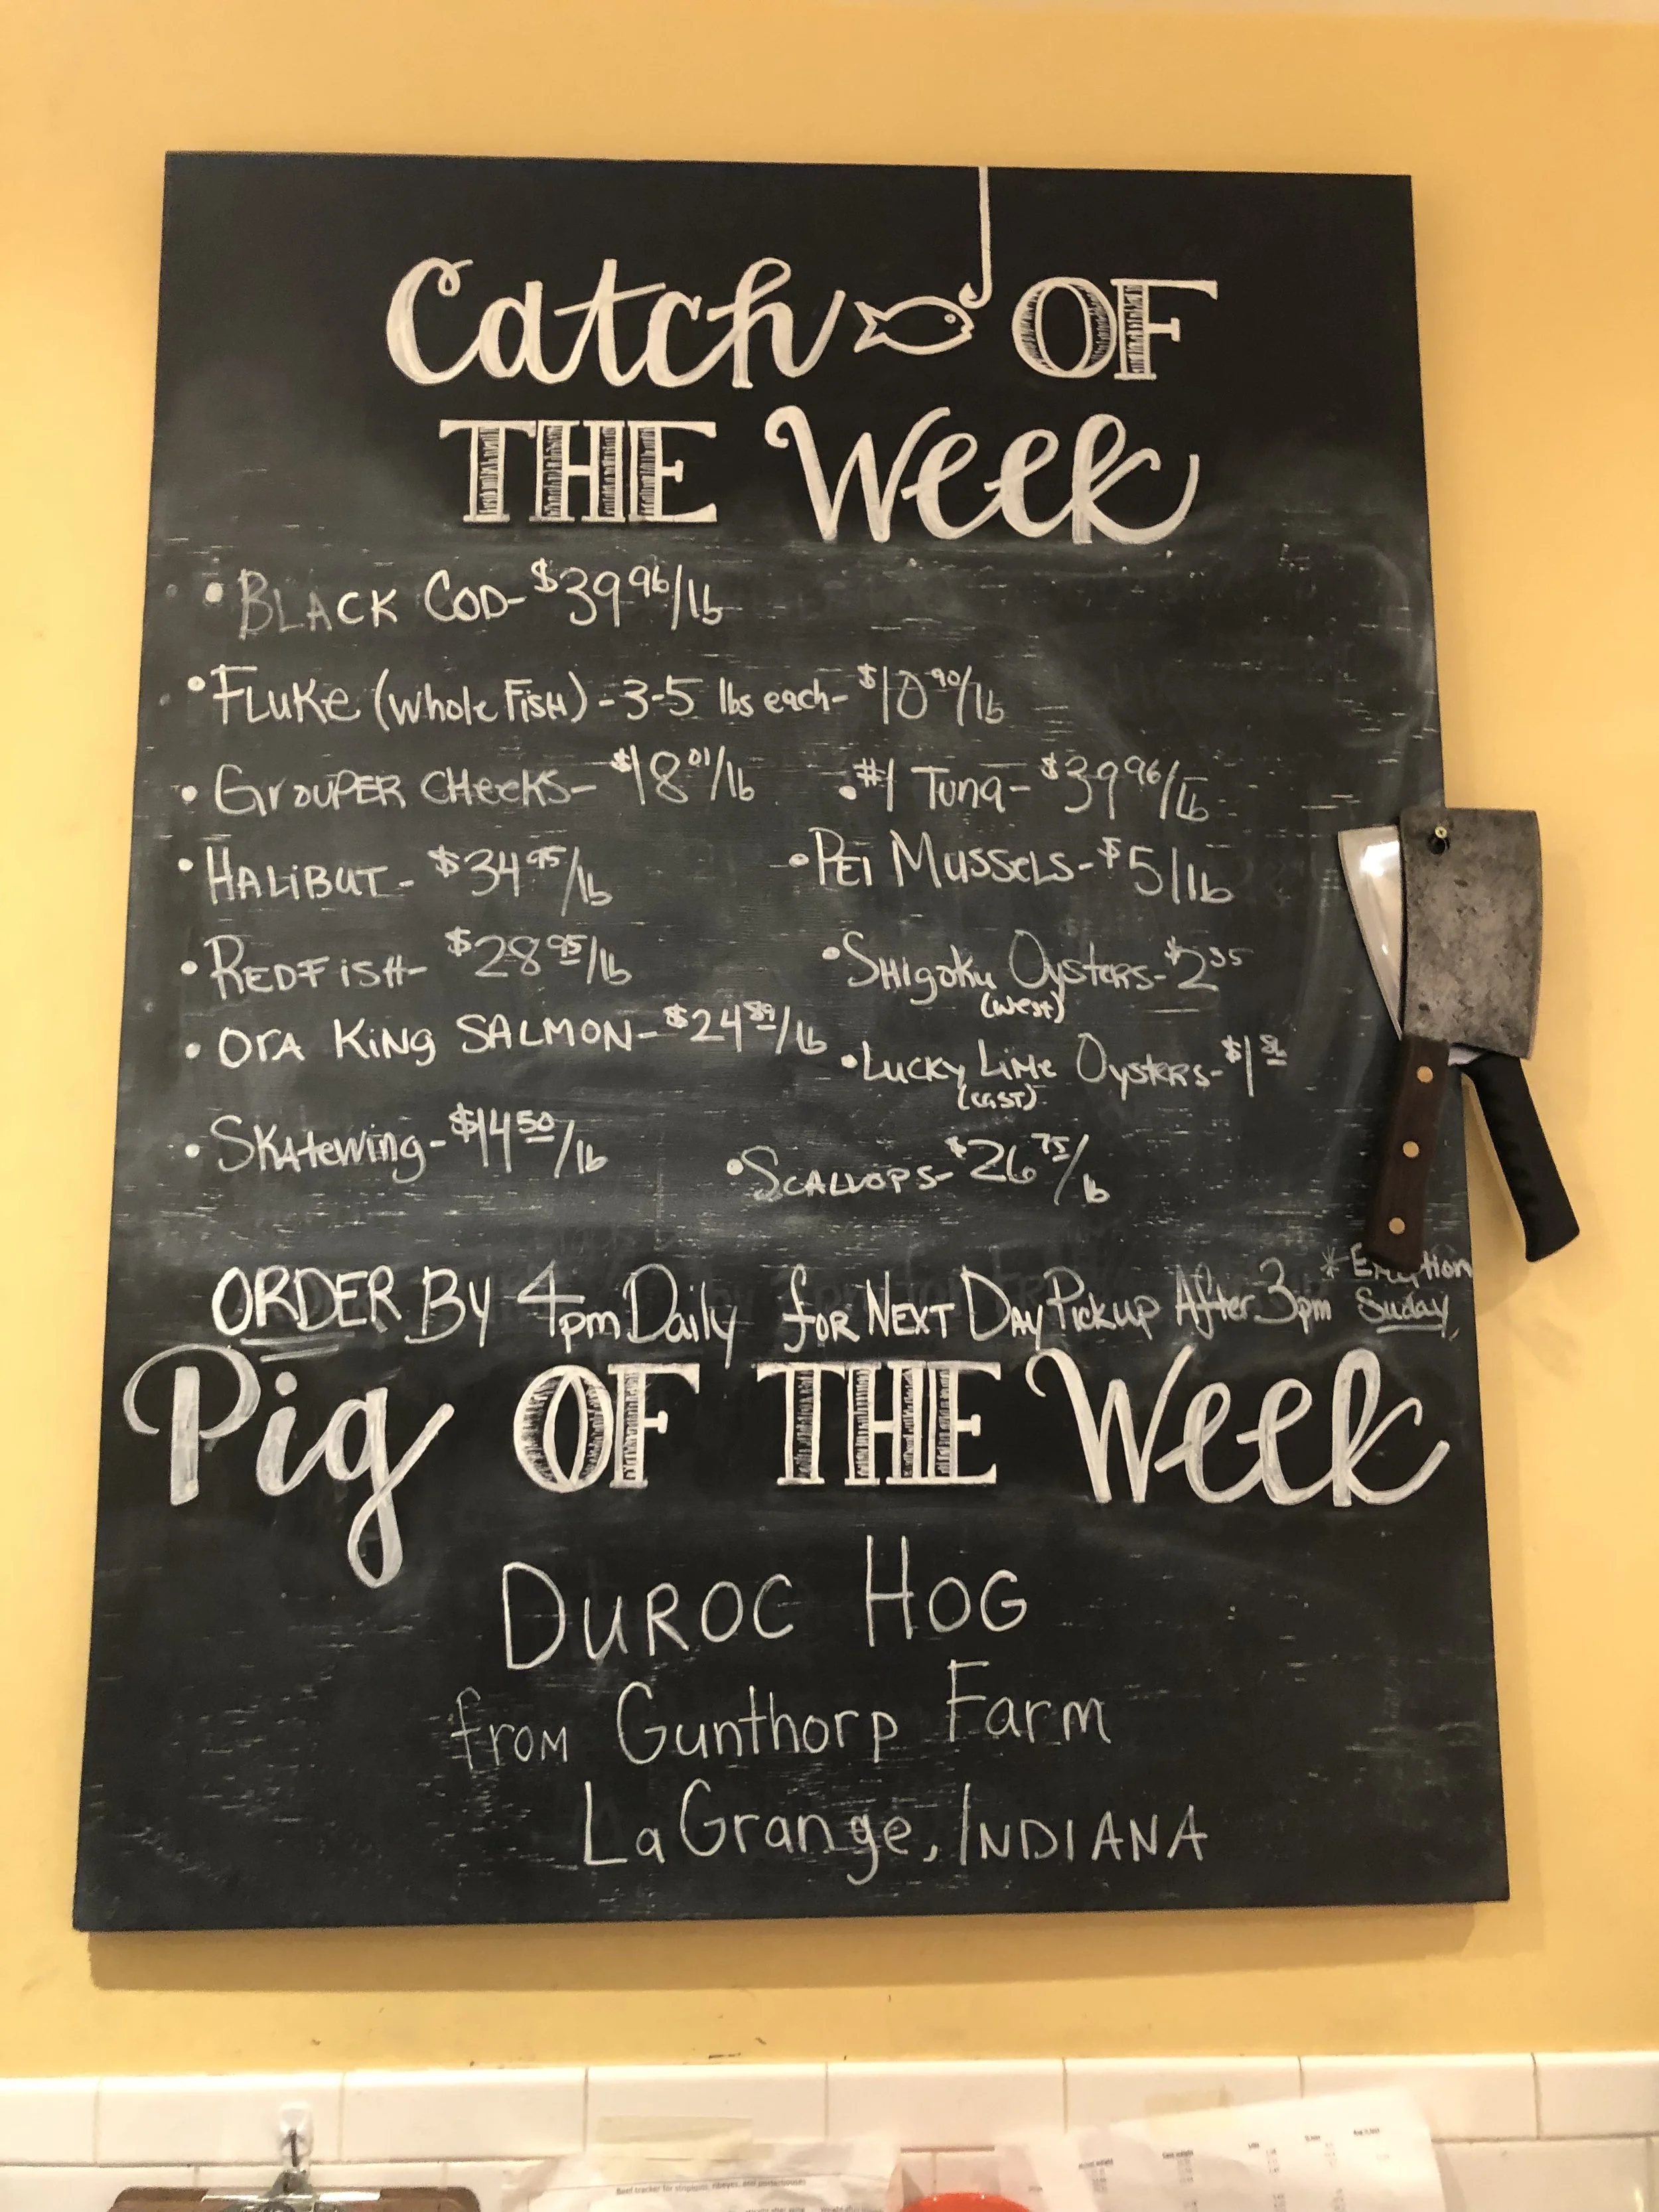 Catch OF
THE Week
• BLACK COD- $39 96/lb
• FLUKE (whole FISH) - 3-5 lbs each- $10 90/lb
• GROUPER CHEEKS- $18 01/lb
• HALIBUT- $34 95/lb
• REDFISH- $28 95/lb
• OrA KiNg SALMON- $24 89/lb
• SKAtewing- $14 50/lb
• #1 Tuna- $39 96/lb
• PEI MUSSELS- $5/lb
• SHIgoku Oysters- $2 35
(west)
• LUCKY LIME OYSTERS- $1
(EAST)
• SCALLOPS- $26 75/lb
ORDER By 4pm Daily for NEXT DAY Pickup After 3pm
Pig OF THE Week
DUROC HOG
from Gunthorp Farm
LaGrange, INDIANA